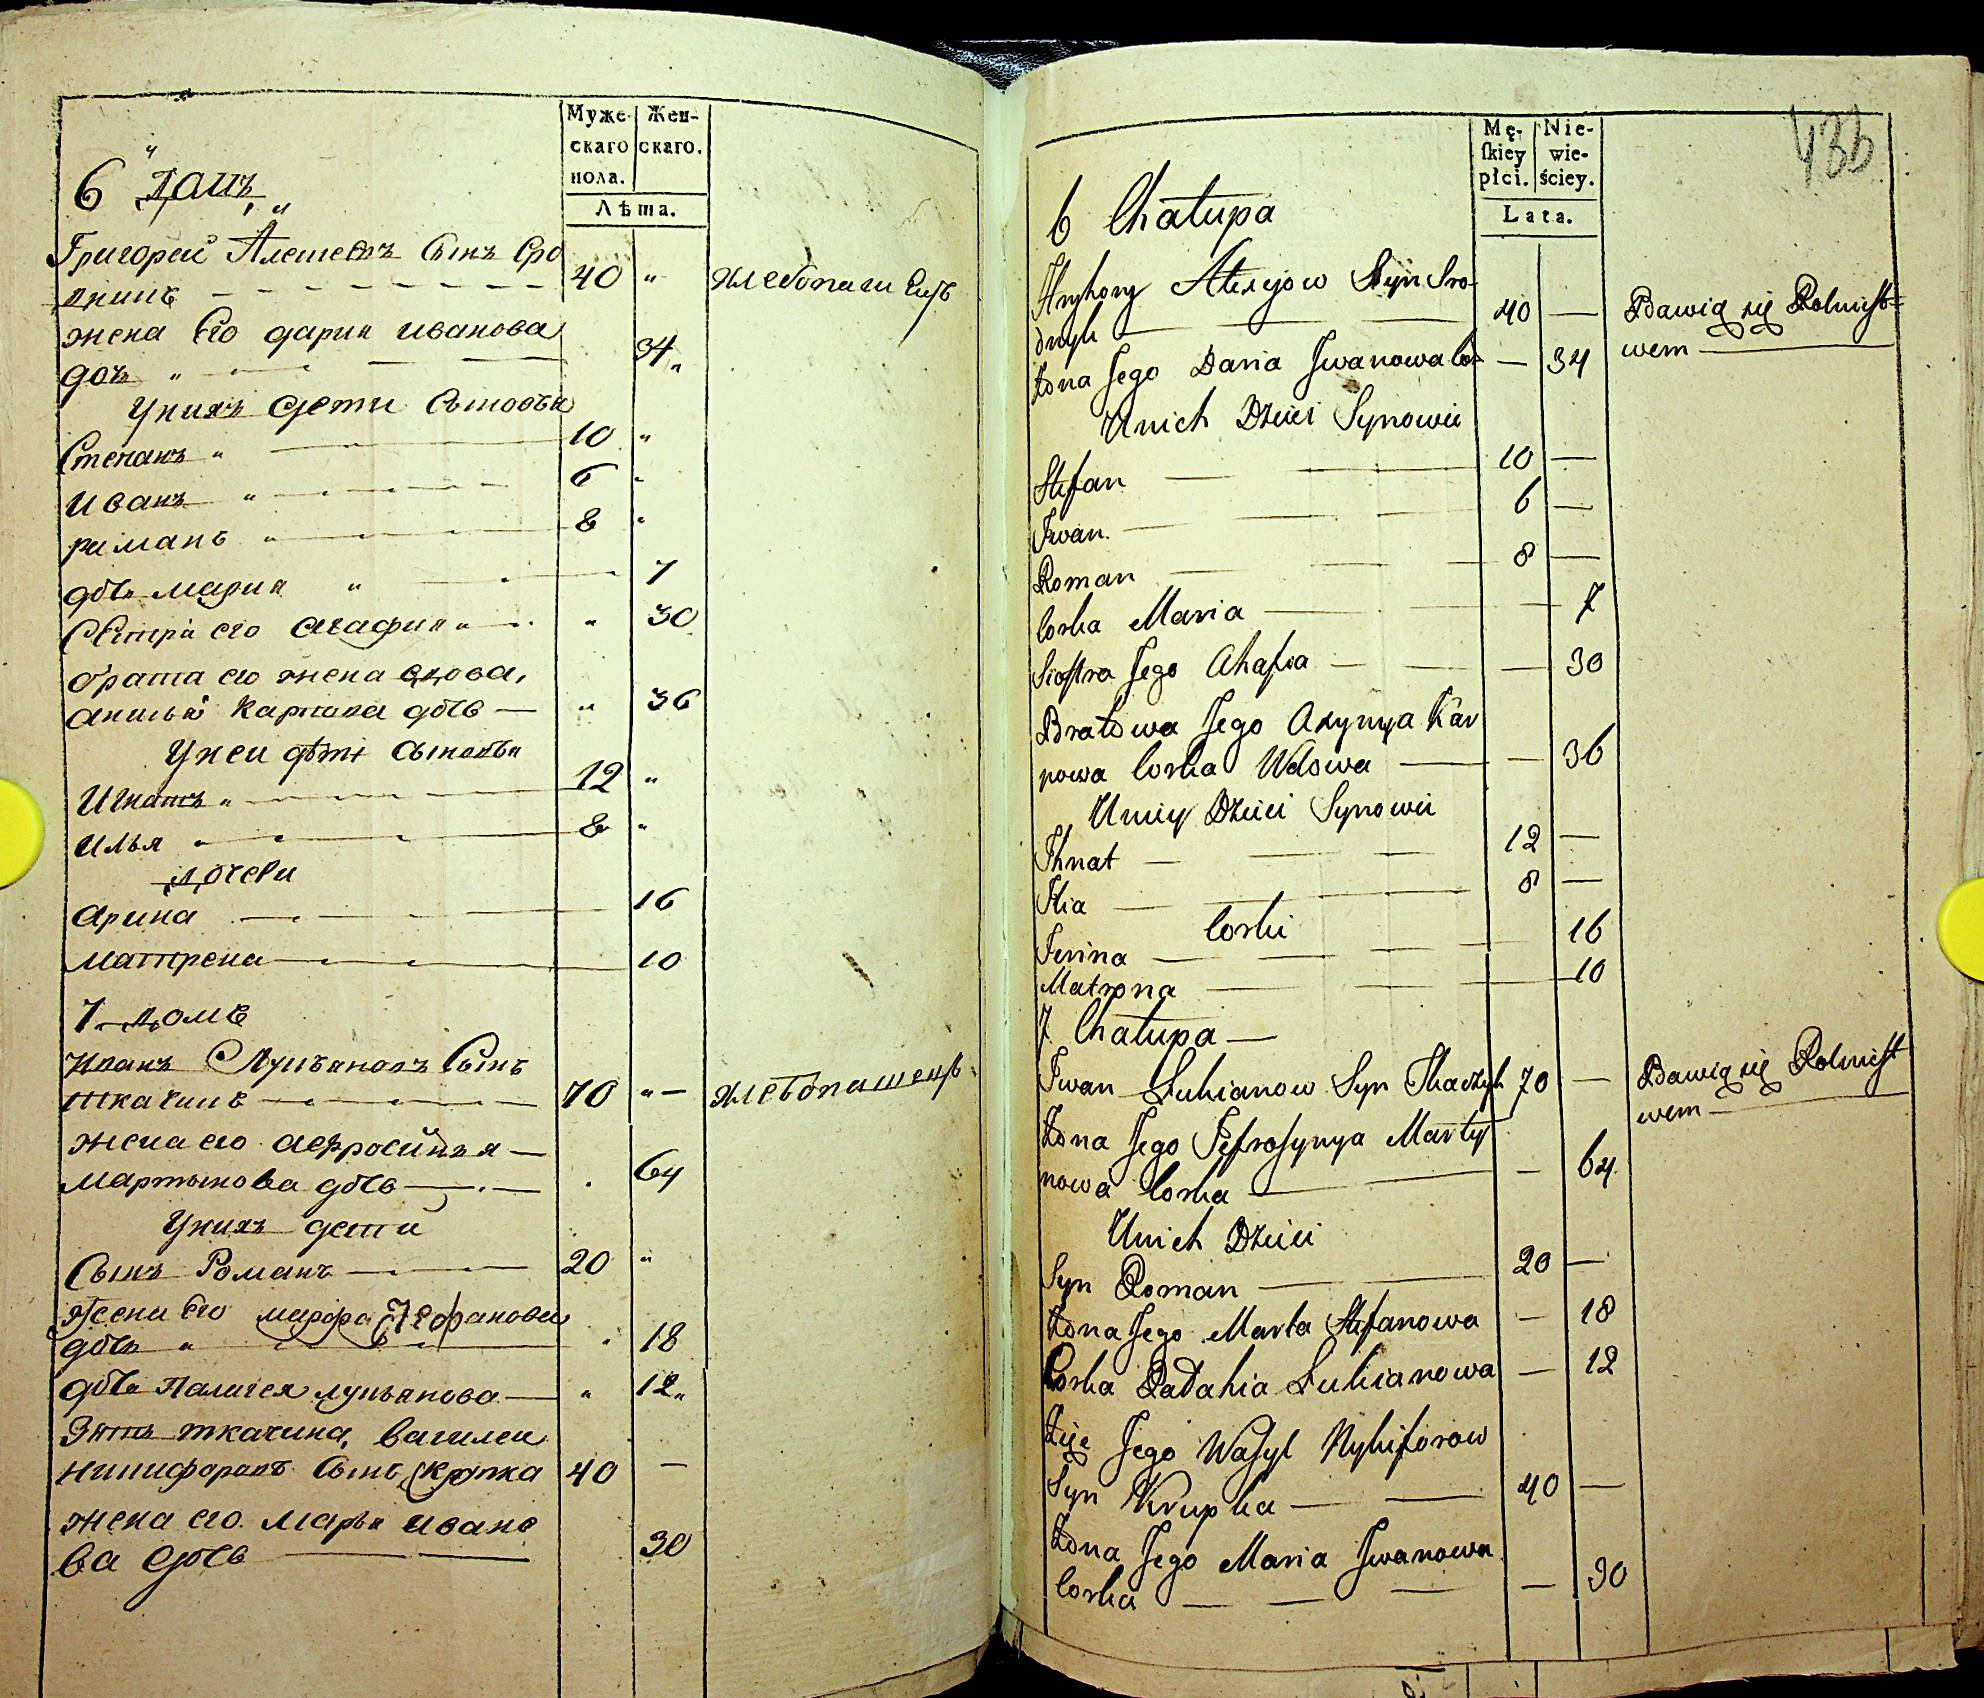 Муже-
скаго
пола.
Жен-
скаго.
Лѣта.
6 домъ
Григорей Алексеевъ Сынъ Сро
дникъ 40 " хлебопашецъ
жена Его дария иванова
дочь " 34 "
Унихъ дети Сыновья
Степанъ " 10 "
иванъ " 6 "
раманъ " 8 "
дочь мария " 7
Сестра его агафия " " 30
брата его жена вдова,
аксинья Карпова дочь " 36
Унеи дети Сыновья
Игнатъ " 12 "
Илья " 8 "
дочери
арина 16
матрена 10
7 домъ
иванъ Лукъяновъ Сынъ
ткачикъ 70 " хлебопашецъ
жена его афросинья
мартынова дочь 64
Унихъ дети
Сынъ Романъ 20 "
жена Его марфа Стефанова
дочь " 18
дочь палагея лукъянова " 12 "
Зять ткачика, василеи
никифоровъ Сынъ Крупка 40 —
жена его марья ивано
ва дочь 30
Mę-
ſkiey
płci.
Nie-
wie-
ściey.
Lata.
43b
6 Chałupa
Hryhory Alexejow Syn Sro-
dnyk 40 — Bawią się Rolnicst=
wem
Żona Jego Daria Jwanowa cor — 34
Unich Dzieci Synowie
Stefan 10 —
Jwan 6 —
Roman 8 —
Corka Maria 7
Siostra Jego Ahafia — 30
Bratowa Jego Axynya Kar
powa Corka Wdowa — 36
Uniey Dzieci Synowie
Jhnat 12 —
Ilia 8 —
Corki
Jerina 16
Matrona 10
7 Chałupa
Jwan Lukianow Syn Tkaczyk 70 — Bawią się Rolnicst
wem
Żona Jego Jefrosynya Marty
nowa Corka — 64
Unich Dzieci
Syn Roman 20 —
Żona Jego Marta Stefanowa — 18
Corka Palahia Lukianowa — 12
Zięc Jego Wasyl Nykiforow
Syn Krupka 40 —
Żona Jego Maria Jwanowa
Corka — 30